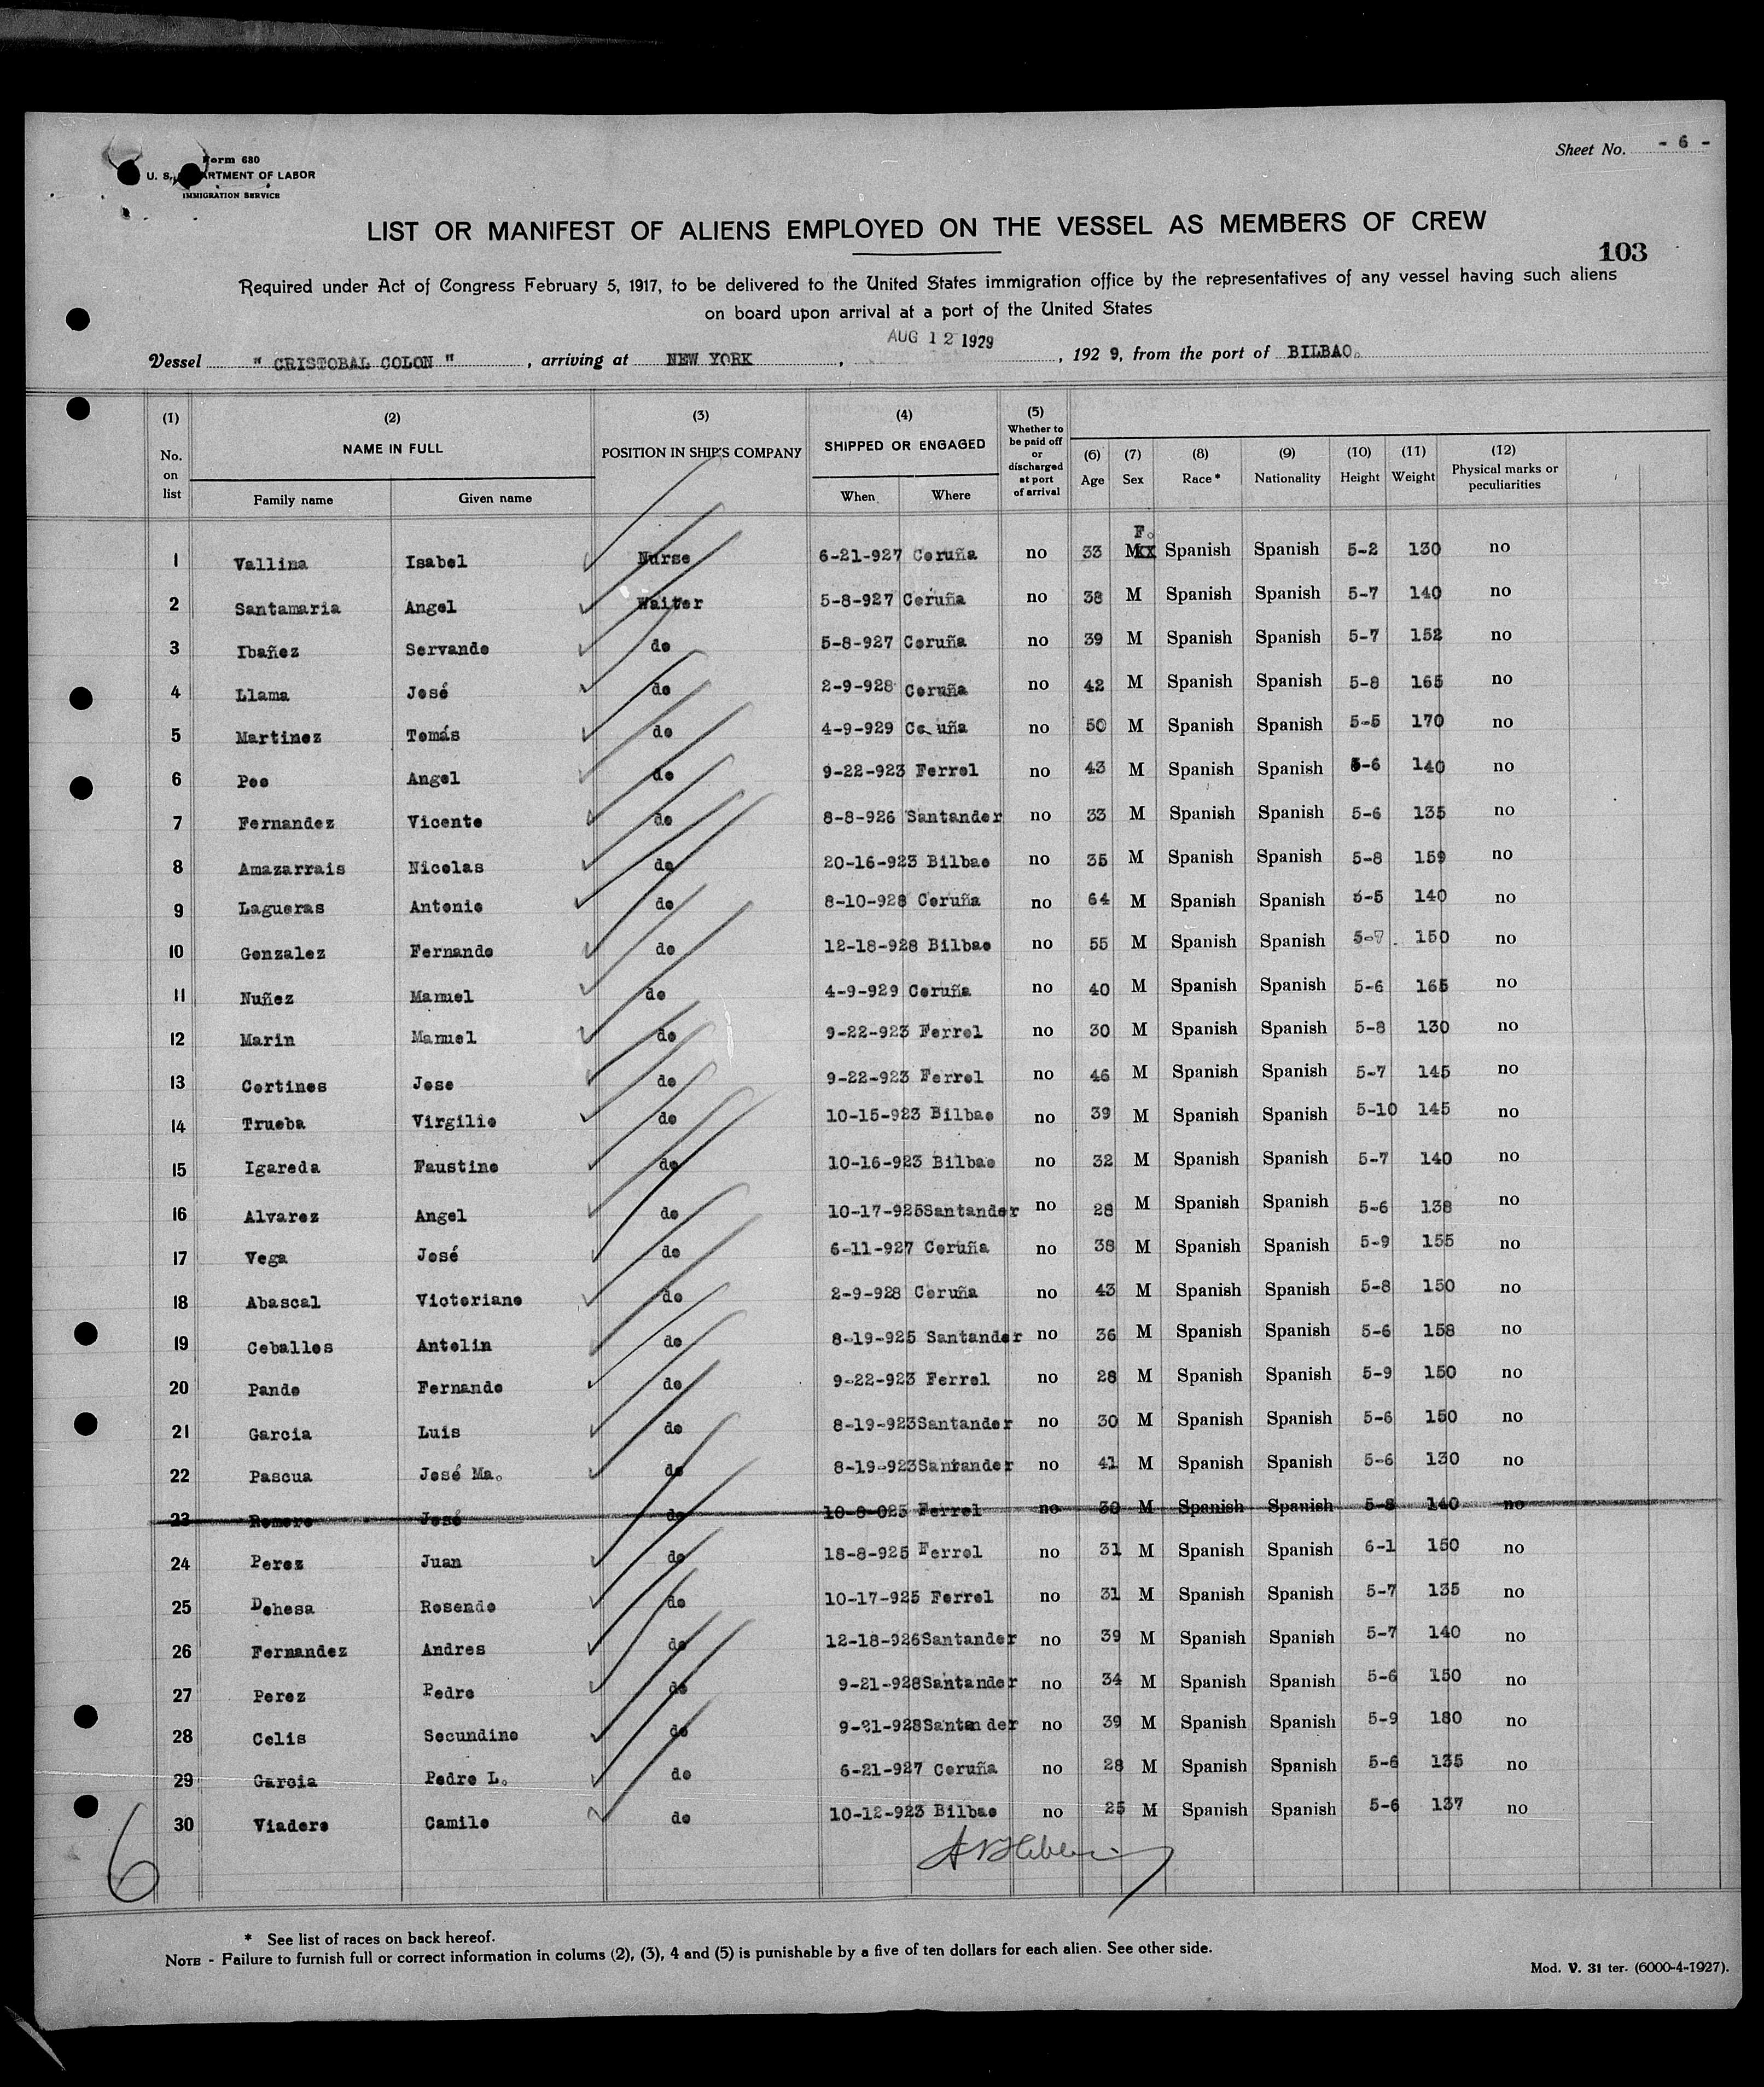 Sheet No. - 6 -
Form 680
U. S. DEPARTMENT OF LABOR
IMMIGRATION SERVICE
LIST OR MANIFEST OF ALIENS EMPLOYED ON THE VESSEL AS MEMBERS OF CREW
103
Required under Act of Congress February 5, 1917, to be delivered to the United States immigration office by the representatives of any vessel having such aliens
on board upon arrival at a port of the United States
AUG 12 1929
Vessel " CRISTOBAL COLON " , arriving at NEW YORK , , 192 9, from the port of BILBAO.
(1) No. on list
(2) NAME IN FULL Family name Given name
(3) POSITION IN SHIP'S COMPANY
(4) SHIPPED OR ENGAGED When Where
(5) Whether to be paid off or discharged at port of arrival
(6) Age (7) Sex (8) Race * (9) Nationality (10) Height (11) Weight (12) Physical marks or peculiarities
F.
1 Vallina Isabel Nurse 6-21-927 Coruña no 33 Mxx Spanish Spanish 5-2 130 no
2 Santamaria Angel Waiter 5-8-927 Coruña no 38 M Spanish Spanish 5-7 140 no
3 Ibañez Servando do 5-8-927 Coruña no 39 M Spanish Spanish 5-7 152 no
4 Llama José do 2-9-928 Coruña no 42 M Spanish Spanish 5-8 165 no
5 Martinez Tomás do 4-9-929 Co uña no 50 M Spanish Spanish 5-5 170 no
6 Peo Angel do 9-22-923 Ferrol no 43 M Spanish Spanish 5-6 140 no
7 Fernandez Vicente do 8-8-926 Santander no 33 M Spanish Spanish 5-6 135 no
8 Amazarrais Nicolas do 20-16-923 Bilbao no 35 M Spanish Spanish 5-8 159 no
9 Lagueras Antonio do 8-10-928 Coruña no 64 M Spanish Spanish 5-5 140 no
10 Gonzalez Fernando do 12-18-928 Bilbao no 55 M Spanish Spanish 5-7 150 no
11 Nuñez Manuel do 4-9-929 Coruña no 40 M Spanish Spanish 5-6 165 no
12 Marin Manuel do 9-22-923 Ferrol no 30 M Spanish Spanish 5-8 130 no
13 Cortines Jose do 9-22-923 Ferrol no 46 M Spanish Spanish 5-7 145 no
14 Trueba Virgilio do 10-15-923 Bilbao no 39 M Spanish Spanish 5-10 145 no
15 Igareda Faustino do 10-16-923 Bilbao no 32 M Spanish Spanish 5-7 140 no
16 Alvarez Angel do 10-17-925 Santander no 28 M Spanish Spanish 5-6 138 no
17 Vega José do 6-11-927 Coruña no 38 M Spanish Spanish 5-9 155 no
18 Abascal Victoriano do 2-9-928 Coruña no 43 M Spanish Spanish 5-8 150 no
19 Ceballos Antolin do 8-19-925 Santander no 36 M Spanish Spanish 5-6 158 no
20 Pando Fernando do 9-22-923 Ferrol no 28 M Spanish Spanish 5-9 150 no
21 Garcia Luis do 8-19-923 Santander no 30 M Spanish Spanish 5-6 150 no
22 Pascua José Ma. do 8-19-923 Santander no 41 M Spanish Spanish 5-6 130 no
23 Romero José do 10-8-025 Ferrol no 30 M Spanish Spanish 5-8 140 no
24 Perez Juan do 18-8-925 Ferrol no 31 M Spanish Spanish 6-1 150 no
25 Dehesa Rosendo do 10-17-925 Ferrol no 31 M Spanish Spanish 5-7 135 no
26 Fernandez Andres do 12-18-926 Santander no 39 M Spanish Spanish 5-7 140 no
27 Perez Pedro do 9-21-928 Santander no 34 M Spanish Spanish 5-6 150 no
28 Celis Secundino do 9-21-928 Santan der no 39 M Spanish Spanish 5-9 180 no
29 Garcia Pedro L. do 6-21-927 Coruña no 28 M Spanish Spanish 5-6 135 no
30 Viadero Camilo do 10-12-923 Bilbao no 25 M Spanish Spanish 5-6 137 no
6
* See list of races on back hereof.
NOTE - Failure to furnish full or correct information in colums (2), (3), 4 and (5) is punishable by a five of ten dollars for each alien. See other side.
Mod. V. 31 ter. (6000-4-1927).